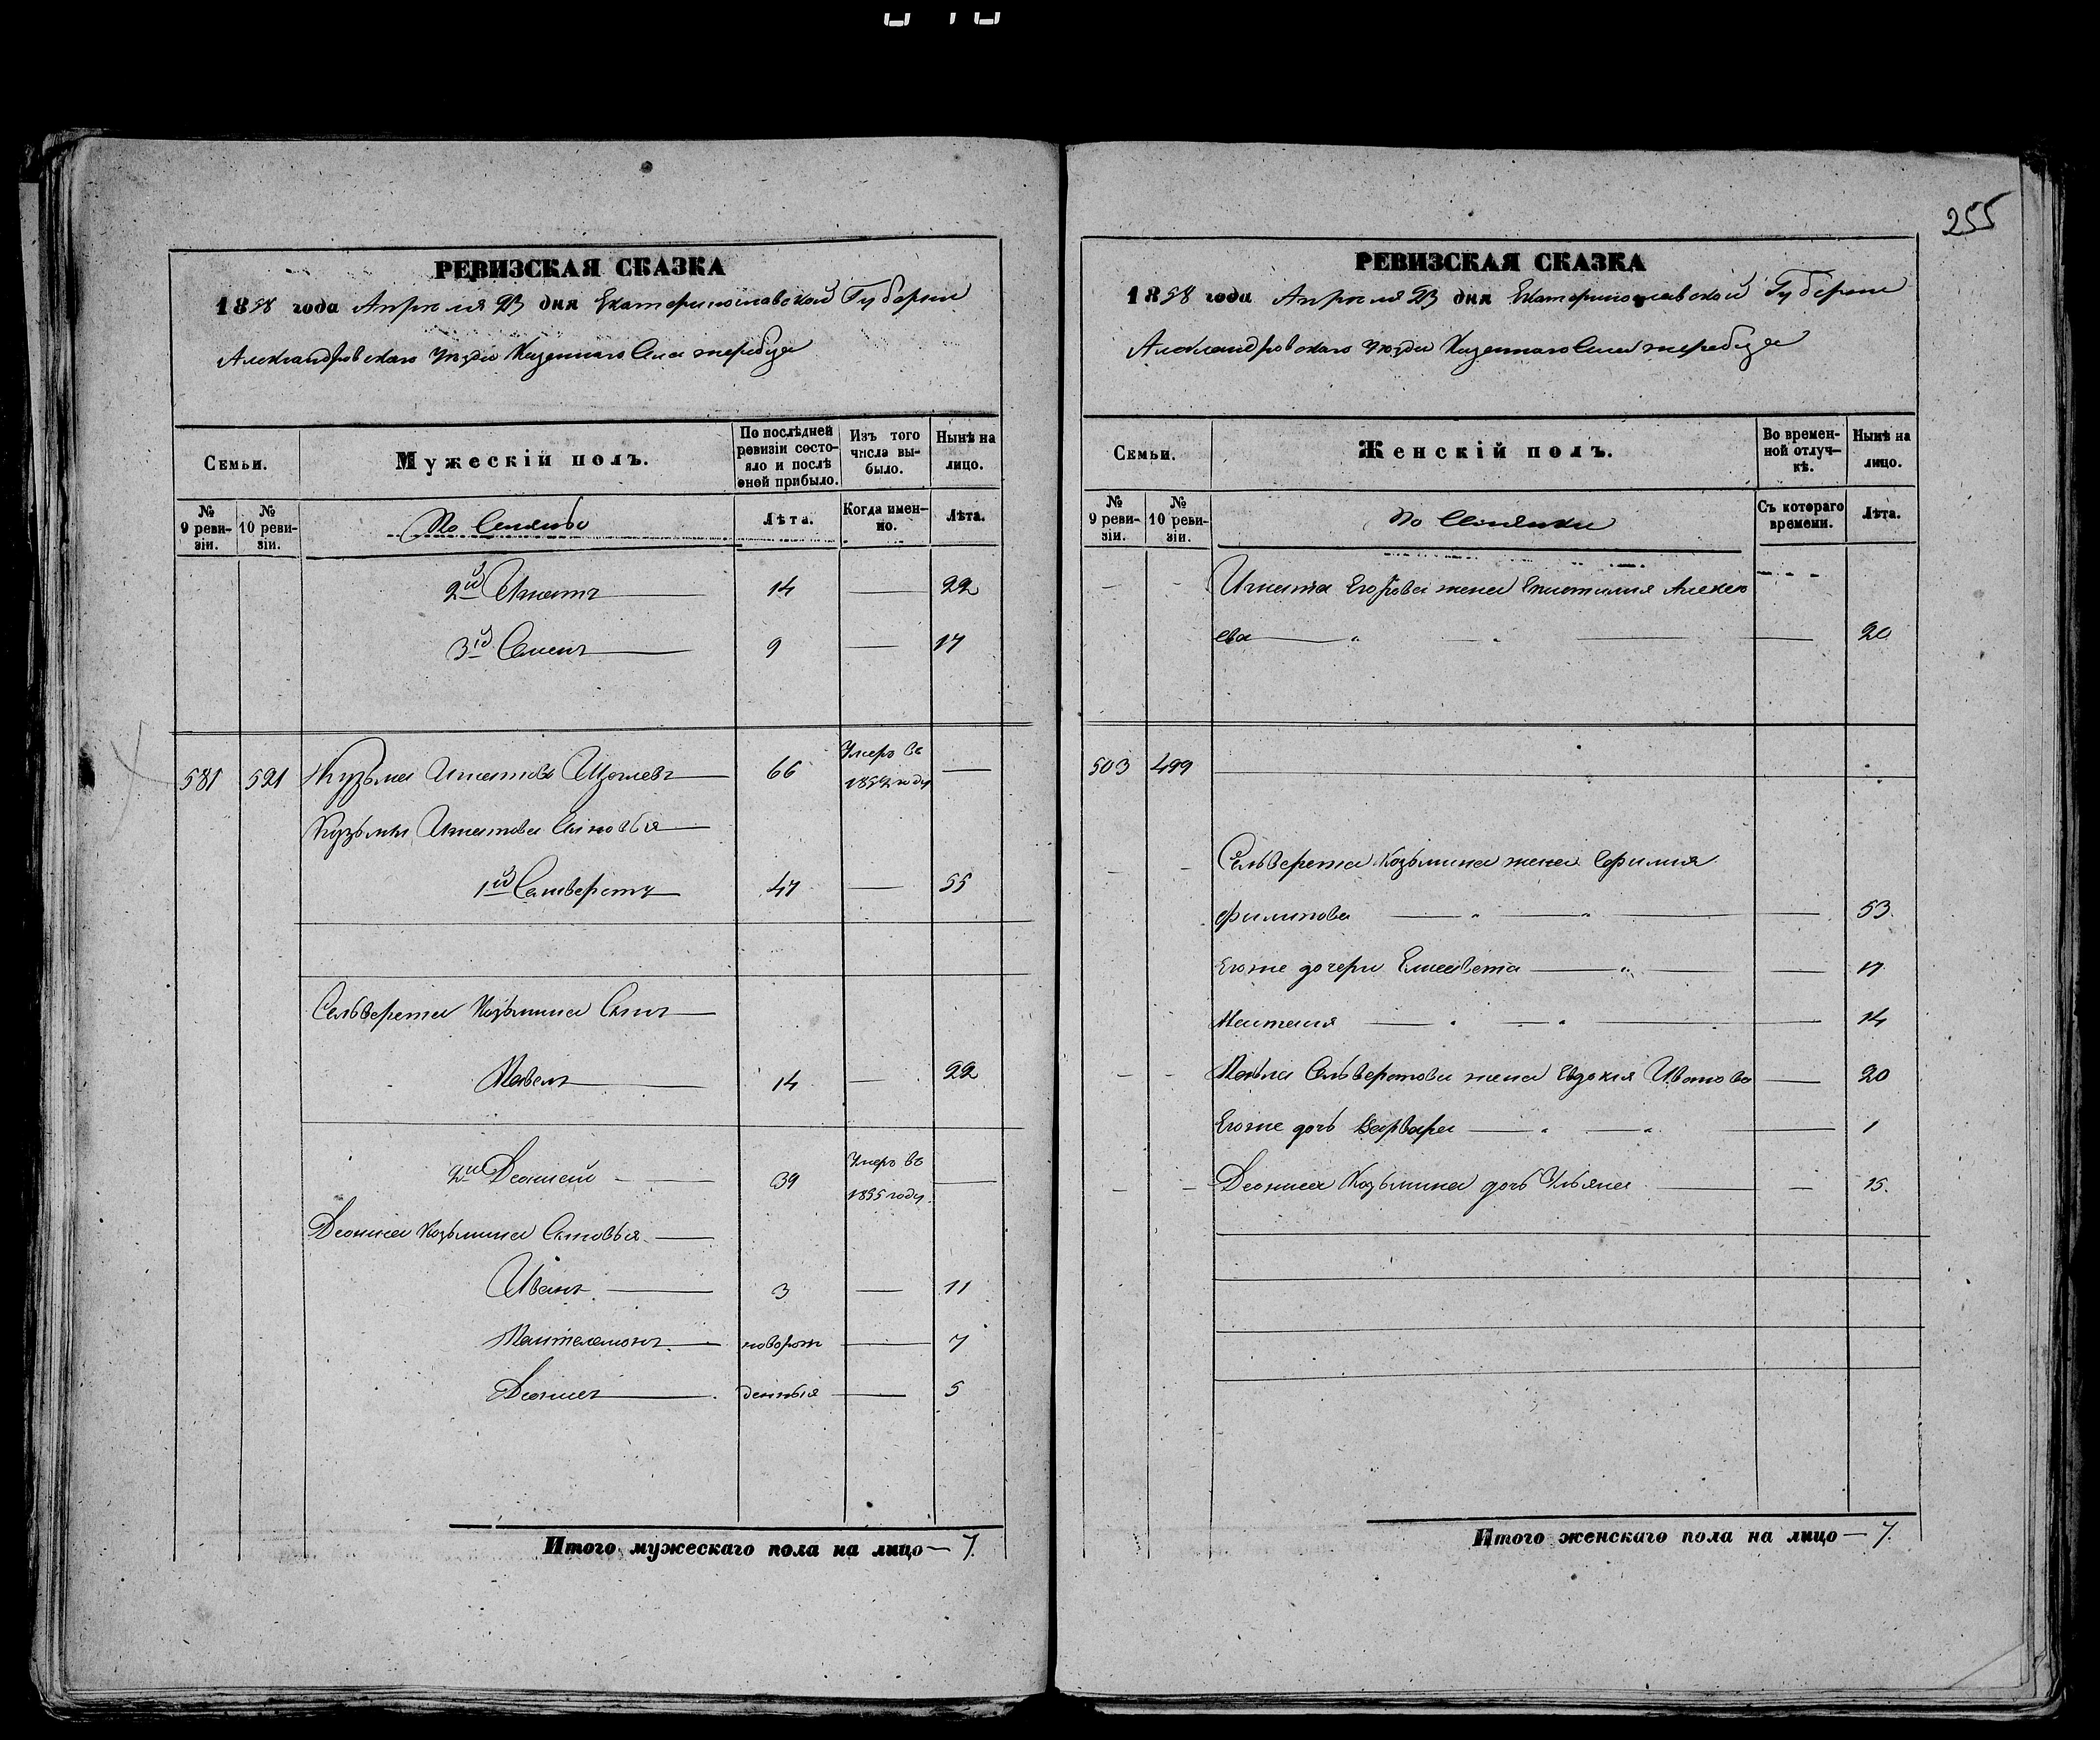 255
РЕВИЗСКАЯ СКАЗКА
1858 года Апреля 23 дня Екатеринославской Губернии
Александровскаго Уезда Казеннаго Села Жеребца
Семьи.
Мужескій полъ.
По послѣдней ревизіи состояло и послѣ оной прибыло.
Изъ того числа выбыло.
Нынѣ на лицо.
№ 9 ревизіи.
№ 10 ревизіи.
Лѣта.
Когда именно.
Лѣта.
2й Игнатъ 14 — 22
3й Семенъ 9 — 17
581 521 Кузьма Игнатовъ 66 Умеръ въ —
Кузьмы Игнатова Сыновья
1й Селиверстъ 47 — 55
Сельверста Козьмина Сынъ
Павелъ 14 — 22
2й Деонисій 39 Умеръ въ 1855 году —
Деониса Козьмина Сыновья
Иванъ 3 — 11
Пантелемонъ новорож — 7
Деонисъ денныя — 5
Итого мужескаго пола на лицо — 7.
РЕВИЗСКАЯ СКАЗКА
1858 года Апреля 23 дня Екатеринославской Губернии
Александровскаго Уезда Казеннаго Села Жеребца
Семьи.
Женскій полъ.
Во временной отлучкѣ.
Нынѣ на лицо.
№ 9 ревизіи.
№ 10 ревизіи.
Съ котораго времени.
Лѣта.
Игната Егорова жена Алексе
ева — 20
503 499
Сельверста Козьмина жена Ефимия
Филипова — 53
Егоже дочери Елисавета — 17
Наталия — 14
Павла Сельверстова жена Евдокия Иванова — 20
Егоже дочь Варвара — 1
Деониса Козьмина дочь Ульяна — 15.
Итого женскаго пола на лицо — 7.